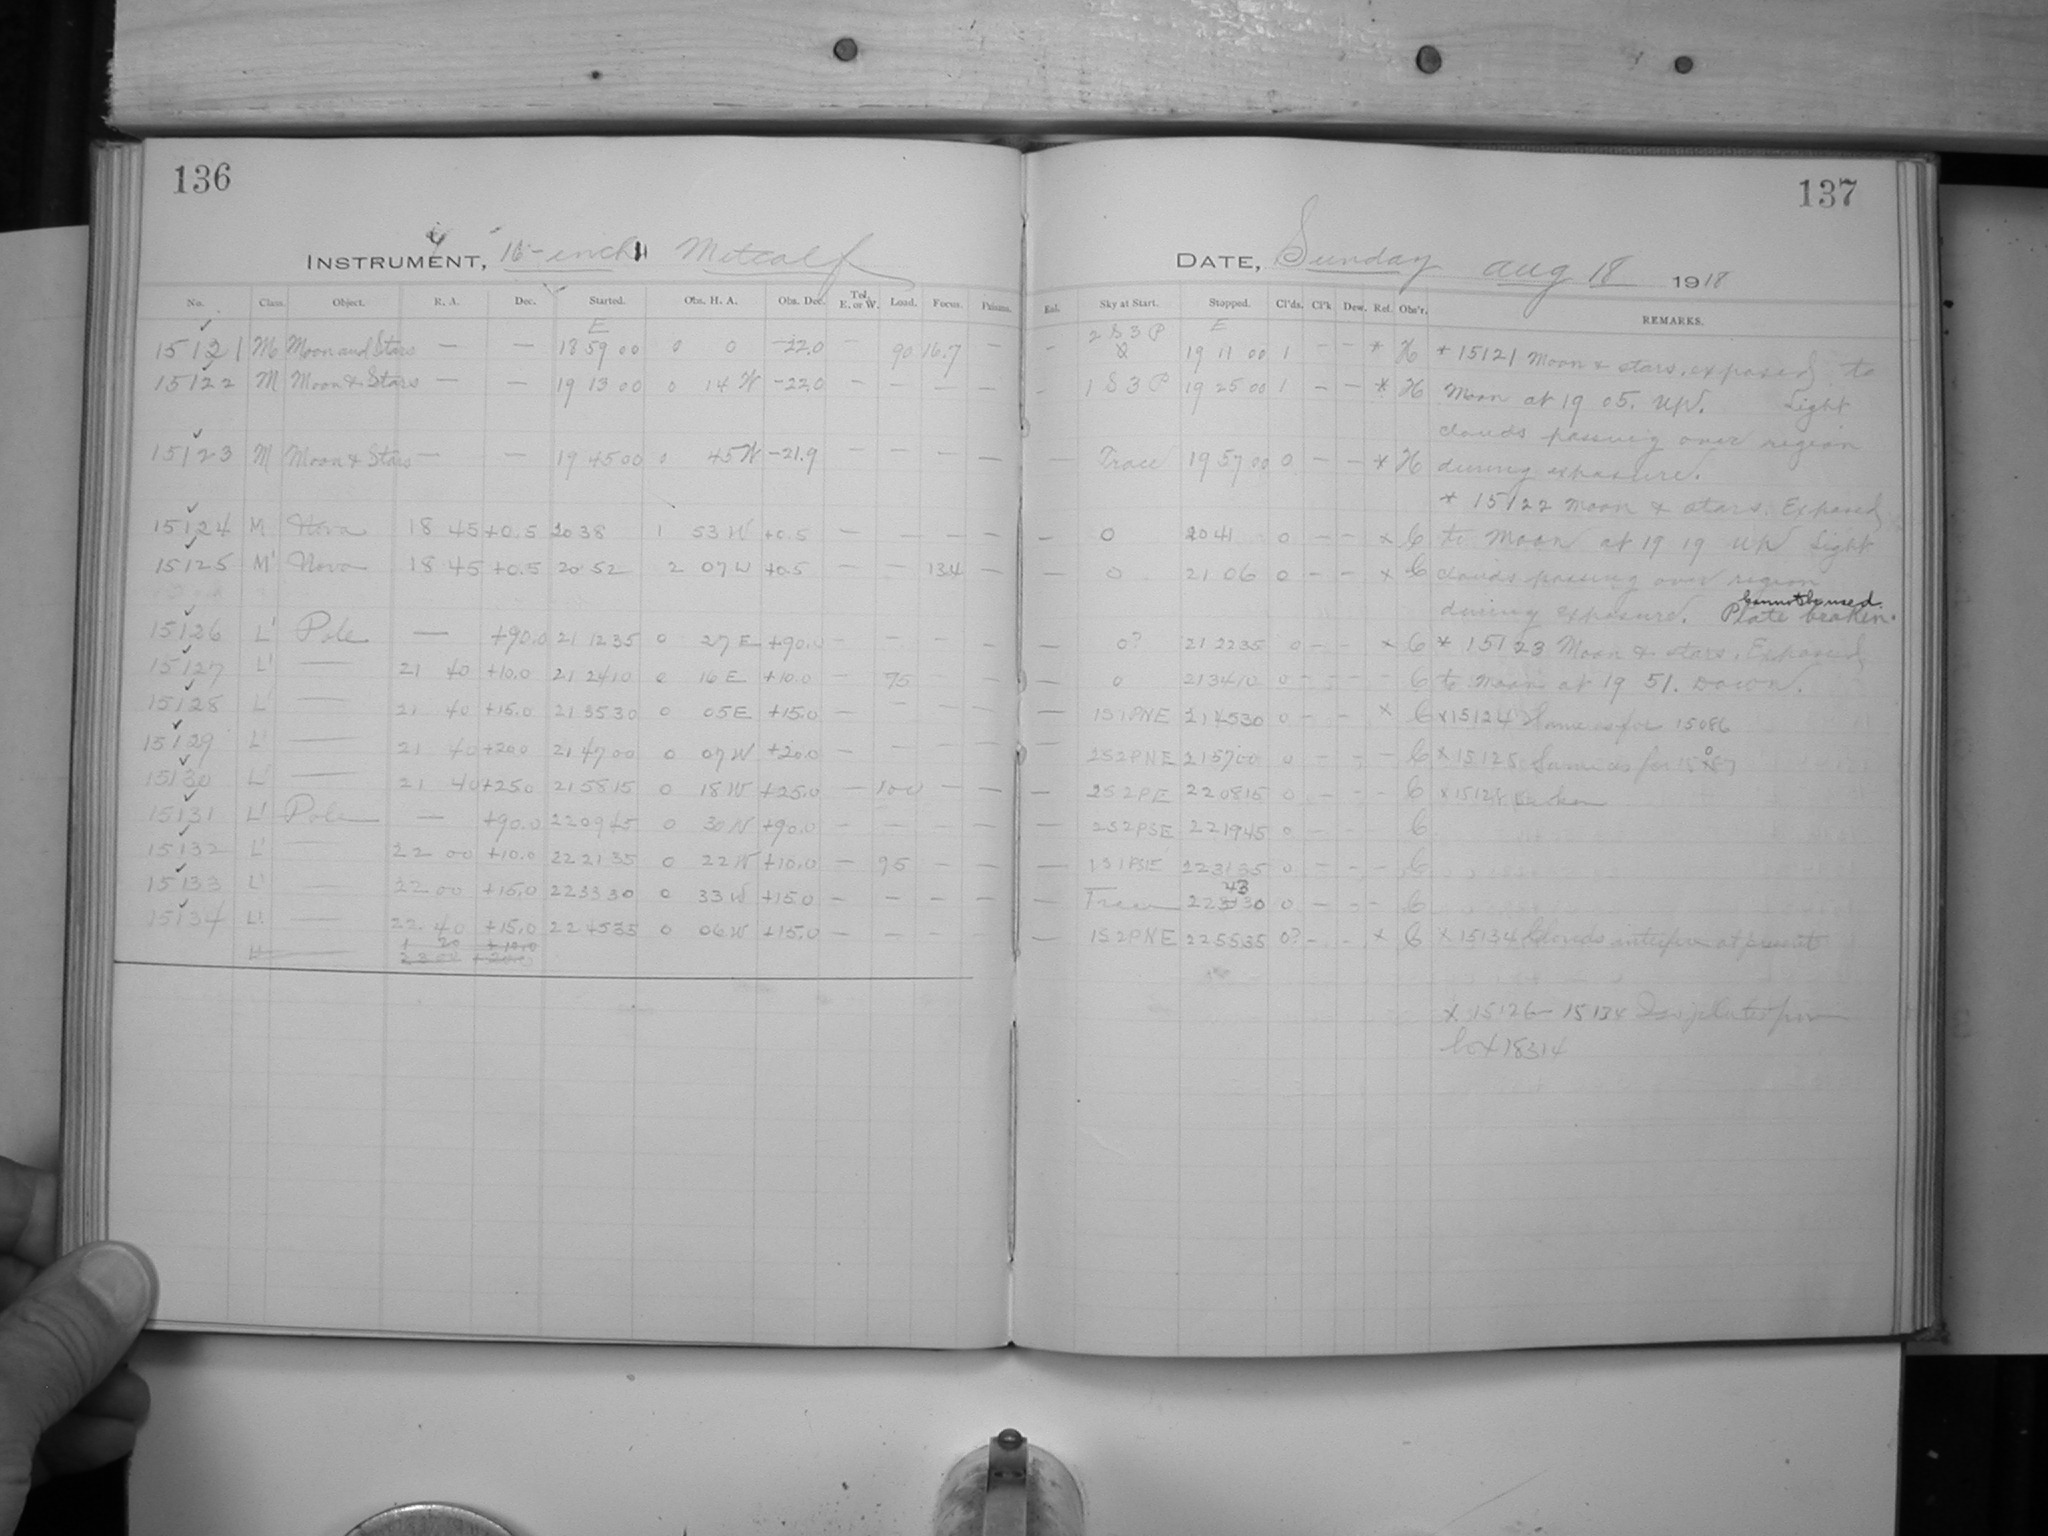 136
INSTRUMENT, 16-inch Metcalf
No. Class. Object. R. A. Dec. Started. Obs. H. A. Obs. Dec. Tel. E. or W. Load. Focus. Prisms.
E
15121 M Moon and Stars — — 18 59 00 0 0 -22.0 — 90 16.7 —
15122 M Moon & Stars — — 19 13 00 0 14 W -22.0 — — — —
15123 M Moon & Stars — — 19 45 00 0 45 W -21.9 — — — —
15124 M Nova 18 45 +0.5 20 38 1 53 W +0.5 — — — —
15125 M' Nova 18 45 +0.5 20 52 2 07 W +0.5 — — 13.4 —
15126 L' Pole — +90.0 21 12 35 0 27 E +90.0 — — — —
15127 L' — 21 40 +10.0 21 24 10 0 16 E +10.0 — 75 — —
15128 L' — 21 40 +15.0 21 35 30 0 05 E +15.0 — — — —
15129 L' — 21 40 +20.0 21 47 00 0 07 W +20.0 — — — —
15130 L' — 21 40 +25.0 21 58 15 0 18 W +25.0 — 100 — —
15131 L' Pole — +90.0 22 09 45 0 30 W +90.0 — — — —
15132 L' — 22 00 +10.0 22 21 35 0 22 W +10.0 — 95 — —
15133 L' — 22 00 +15.0 22 33 30 0 33 W +15.0 — — — —
15134 L' — 22 40 +15.0 22 45 35 0 06 W +15.0 — — — —
1 20 +10.0
23 00 +20.0
137
DATE, Sunday Aug 18 1918
Eal. Sky at Start. Stopped. Cl'ds. Cl'k Dew. Ref. Obs'r. REMARKS.
2 S 3 P E
— 19 11 00 1 — — * H * 15121 Moon & stars. exposed to
— 1 S 3 P 19 25 00 1 — — * H Moon at 19 05. UP. Light
clouds passing over region
— Trace 19 57 00 0 — — * H during exposure.
* 15122 Moon & stars. Exposed
— 0 20 41 0 — — x C to Moon at 19 19 UP Light
— 0 21 06 0 — — x C clouds passing over region
Cannot be used.
during exposure. Plate broken.
— 0? 21 22 35 0 — — x C * 15123 Moon & stars. Exposed
— 0 21 34 10 0 — — — C to Moon at 19 51. Down.
— 1S1PNE 21 45 30 0 — — x C x 15124 Same as for 15086
— 2S2PNE 21 57 00 0 — — — C x 15125 Same as for 15087
— 2S2PE 22 08 15 0 — — — C x 15128 Broken
— 2S2PSE 22 19 45 0 — — C
— 1S1PSE 22 31 35 0 — — — C
43
— Trace 22 30 0 — — — C
— 1S2PNE 22 55 35 0? — — x C x 15134 Clouds interfere at present
x 15126 – 15134 plates from
box 18314